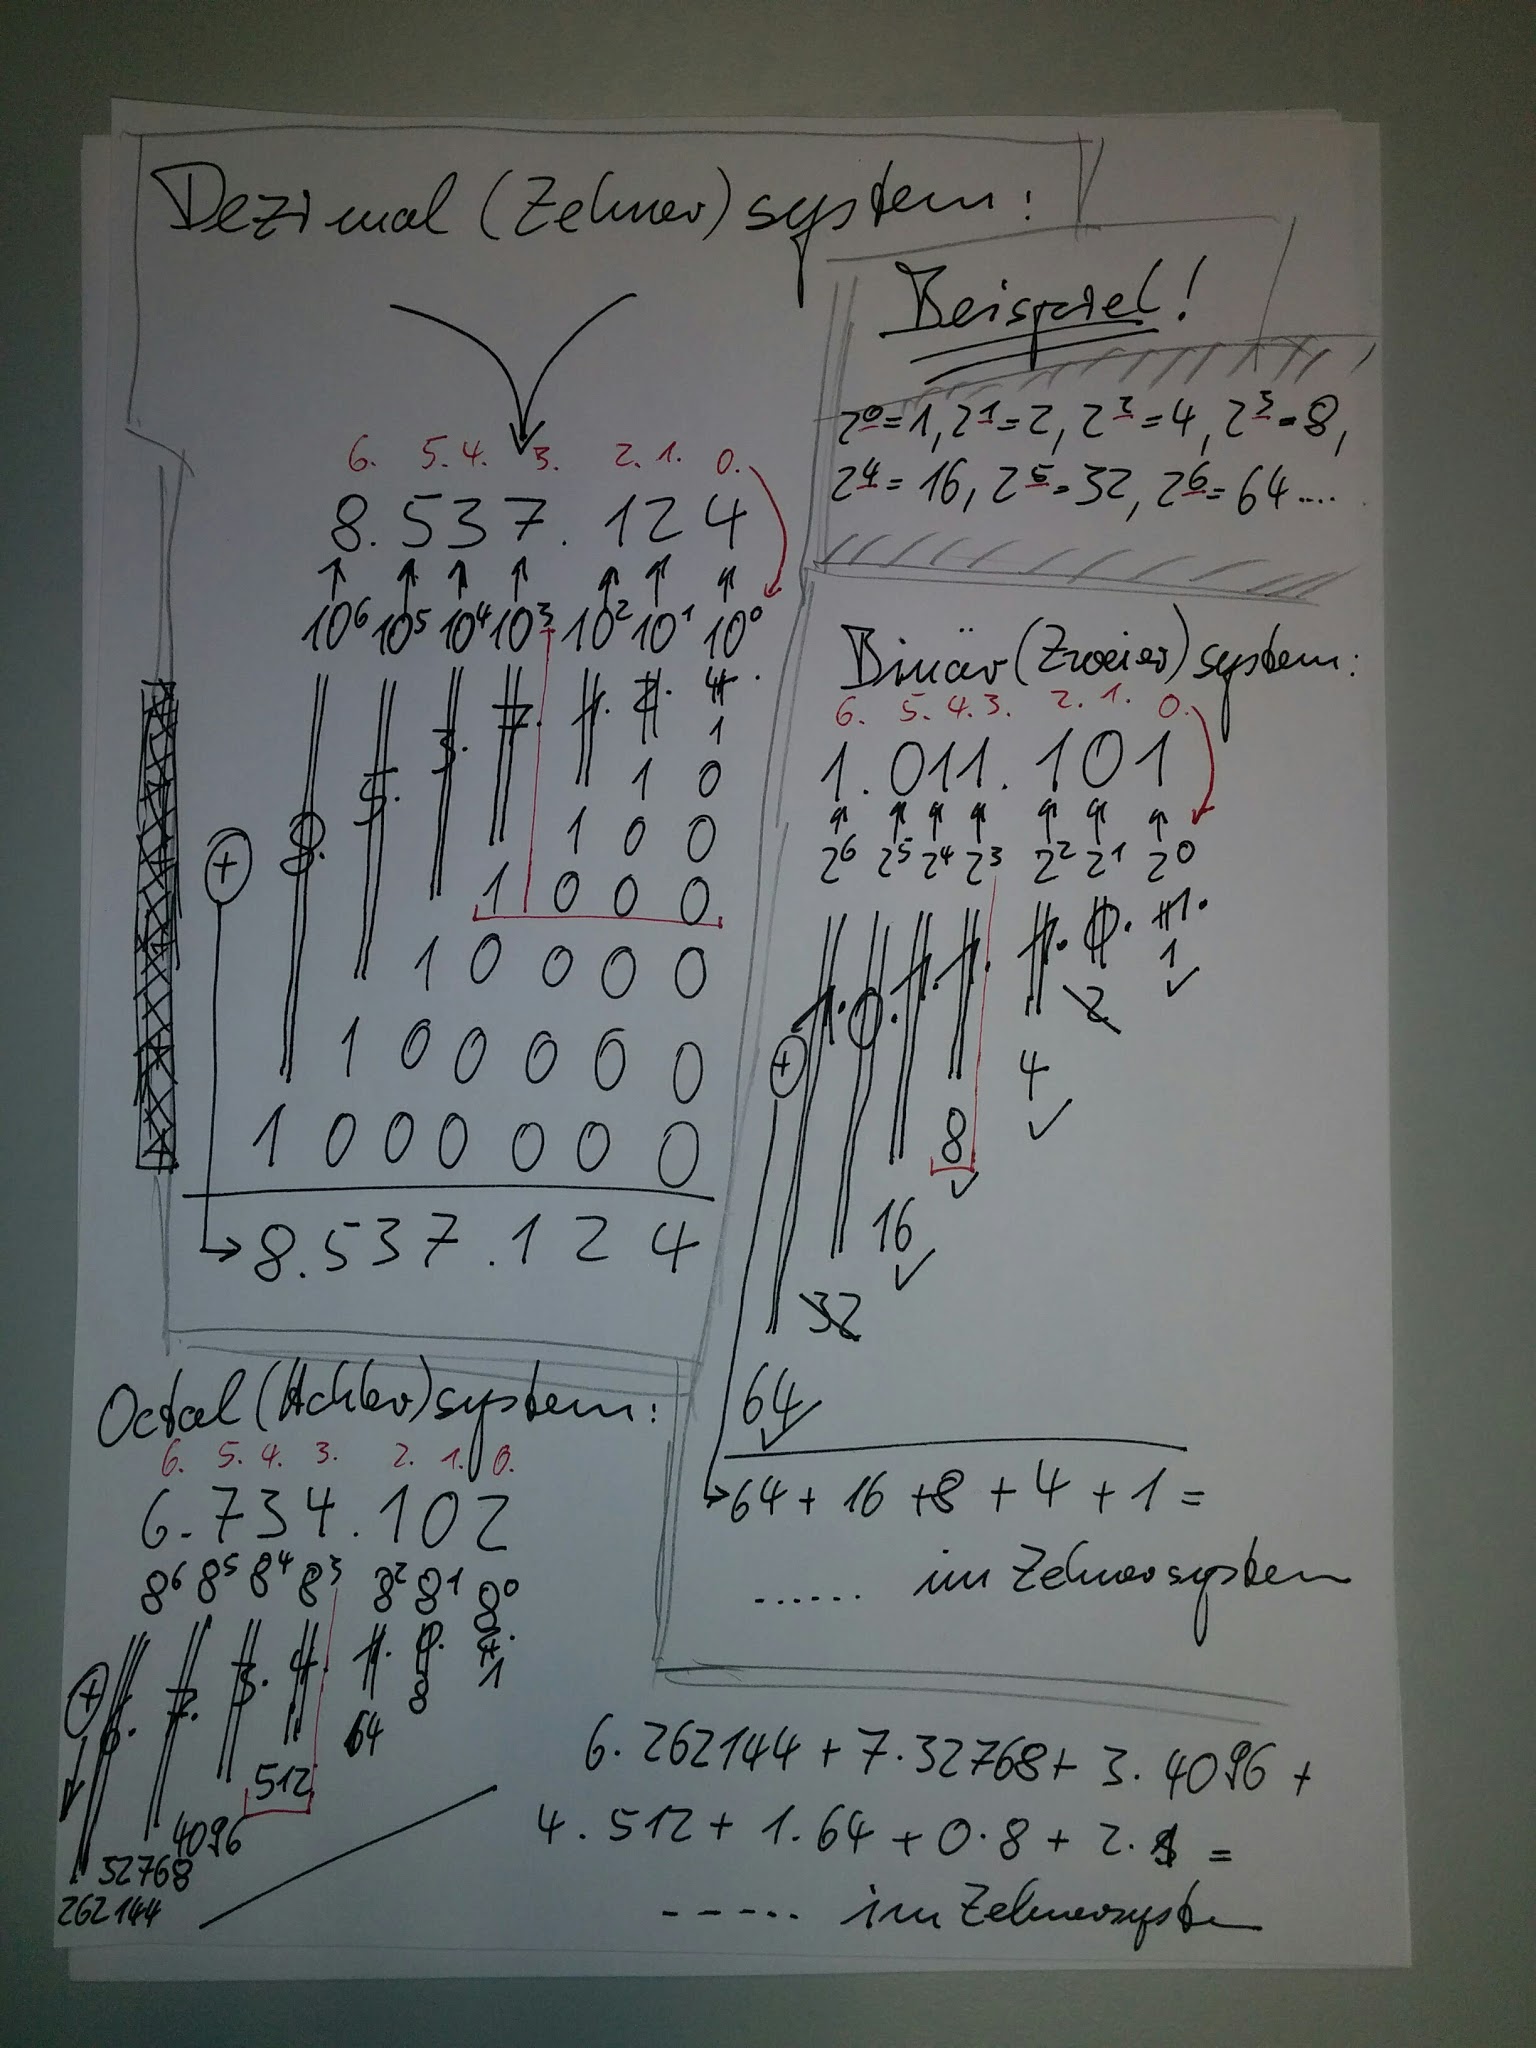 Dezimal (Zehner) system:
6. 5. 4. 3. 2. 1. 0.
8.537.124
10⁶ 10⁵ 10⁴ 10³ 10² 10¹ 10⁰
8. 5. 3. 7. 1. 2. 4.
1
1 0
1 0 0
1 0 0 0
1 0 0 0 0
1 0 0 0 0 0
1 0 0 0 0 0 0
+
8.537.124
Beispiel!
2⁰=1, 2¹=2, 2²=4, 2³=8,
2⁴=16, 2⁵=32, 2⁶=64....
Binär (Zweier) system:
6. 5. 4. 3. 2. 1. 0.
1.011.101
2⁶ 2⁵ 2⁴ 2³ 2² 2¹ 2⁰
1. 0. 1. 1. 1. 0. 1.
1
2
4
8
16
32
64
+
64 + 16 + 8 + 4 + 1 =
...... im Zehnersystem
Octal (Achter) system:
6. 5. 4. 3. 2. 1. 0.
6.734.102
8⁶ 8⁵ 8⁴ 8³ 8² 8¹ 8⁰
6. 7. 3. 4. 1. 0. 2.
1
8
64
512
4096
32768
262144
+
6.262144 + 7.32768 + 3.4096 +
4.512 + 1.64 + 0.8 + 2.1 =
----.. im Zehnersystem